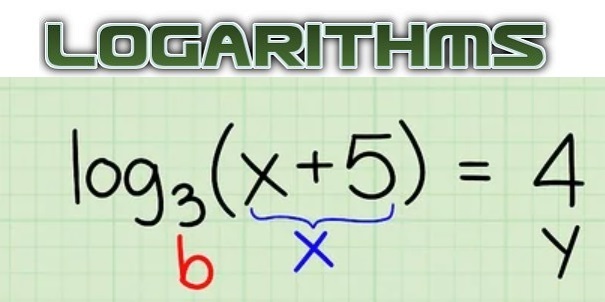 LOGARITHMS
log₃(x+5) = 4
b x y